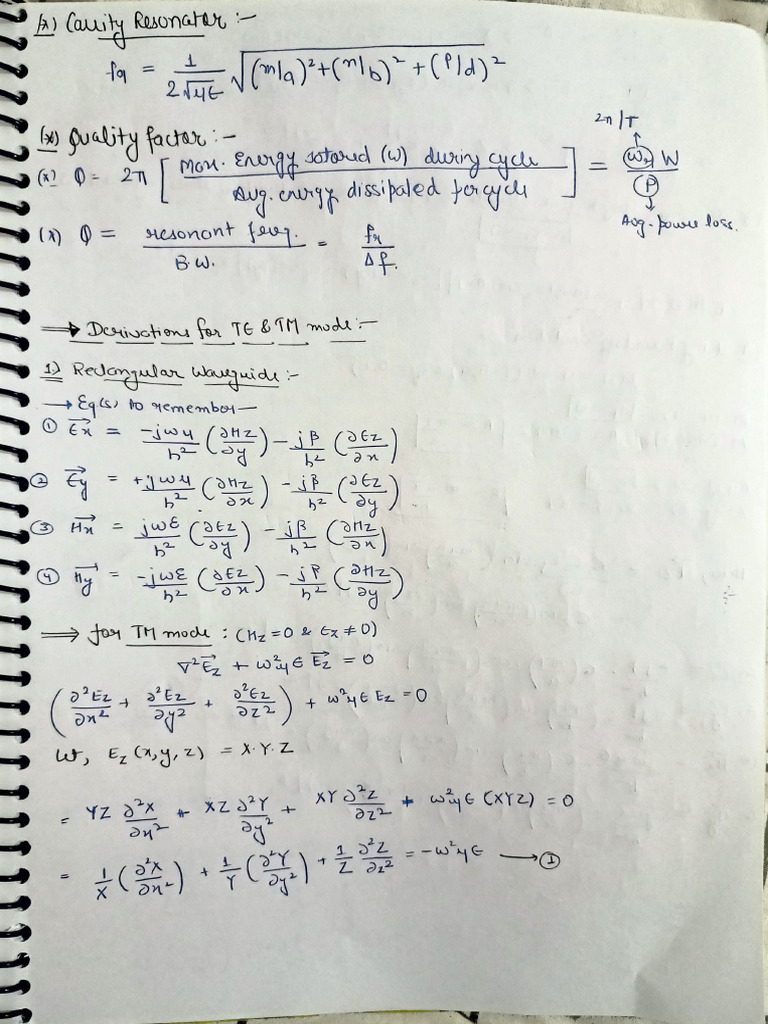 (*) Cavity Resonator :-
fr = 1 / 2√με √(m/a)² + (n/b)² + (P/d)²
(*) Quality factor :-
2π/T
(*) Q = 2π [ Max. Energy sotored (W) during cycle / Avg. energy dissipated per cycle ] = ωr W / P
Avg. power loss.
(*) Q = resonant freq. / B.W. = fr / Δf.
⇒ Derivations for TE & TM mode :-
1) Rectangular Waveguide :-
→ Eq(s) to remember —
① Ex = -jωμ/h² (∂Hz/∂y) - jβ/h² (∂Ez/∂x)
② Ey = +jωμ/h² (∂Hz/∂x) - jβ/h² (∂Ez/∂y)
③ Hx = jωε/h² (∂Ez/∂y) - jβ/h² (∂Hz/∂x)
④ Hy = -jωε/h² (∂Ez/∂x) - jβ/h² (∂Hz/∂y)
⇒ for TM mode : (Hz = 0 & Ez ≠ 0)
∇²Ez + ω²με Ez = 0
(∂²Ez/∂x² + ∂²Ez/∂y² + ∂²Ez/∂z²) + ω²με Ez = 0
let, Ez (x, y, z) = X·Y·Z
= YZ ∂²X/∂x² + XZ ∂²Y/∂y² + XY ∂²Z/∂z² + ω²με (XYZ) = 0
= 1/X (∂²X/∂x²) + 1/Y (∂²Y/∂y²) + 1/Z ∂²Z/∂z² = -ω²με → ①